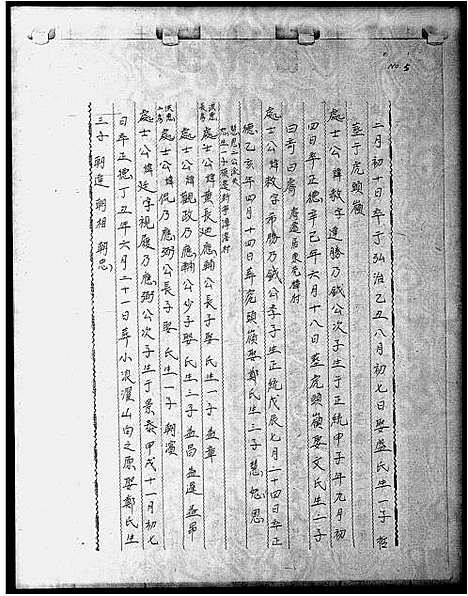 No 5
二月初十日卒于弘治乙丑八月初七日娶盛氏生一子哲
葬于虎頭嶺
處士公諱敖字達勝乃鉞公次子生于正統甲子年九月初
四日卒正德辛巳年六月十八日葬虎頭嶺娶文氏生二子
曰奇曰齋 奇遷居東光緯村
處士公諱敦字希勝乃鉞公季子生正統戊辰七月二十四日卒正
德乙亥年四月十四日葬虎頭嶺娶鄭氏生三子慧忽思
慧思二公沒失
忽生子領遷新寧潭唐村
洪忠長房 處士公諱黨長廷應輔公長子娶氏生一子孟章
處士公諱觀政乃應輔公少子娶氏生三子孟昌孟暹孟昂
洪忠二房 處士公諱侃乃應弼公長子娶氏生一子朝賓
處士公諱廷字視殷乃應弼公次子生于景泰甲戌十一月初七
日卒正德丁丑年六月二十一日葬小浪灌山向之原娶鄭氏生
三子 朝達 朝相 朝忠